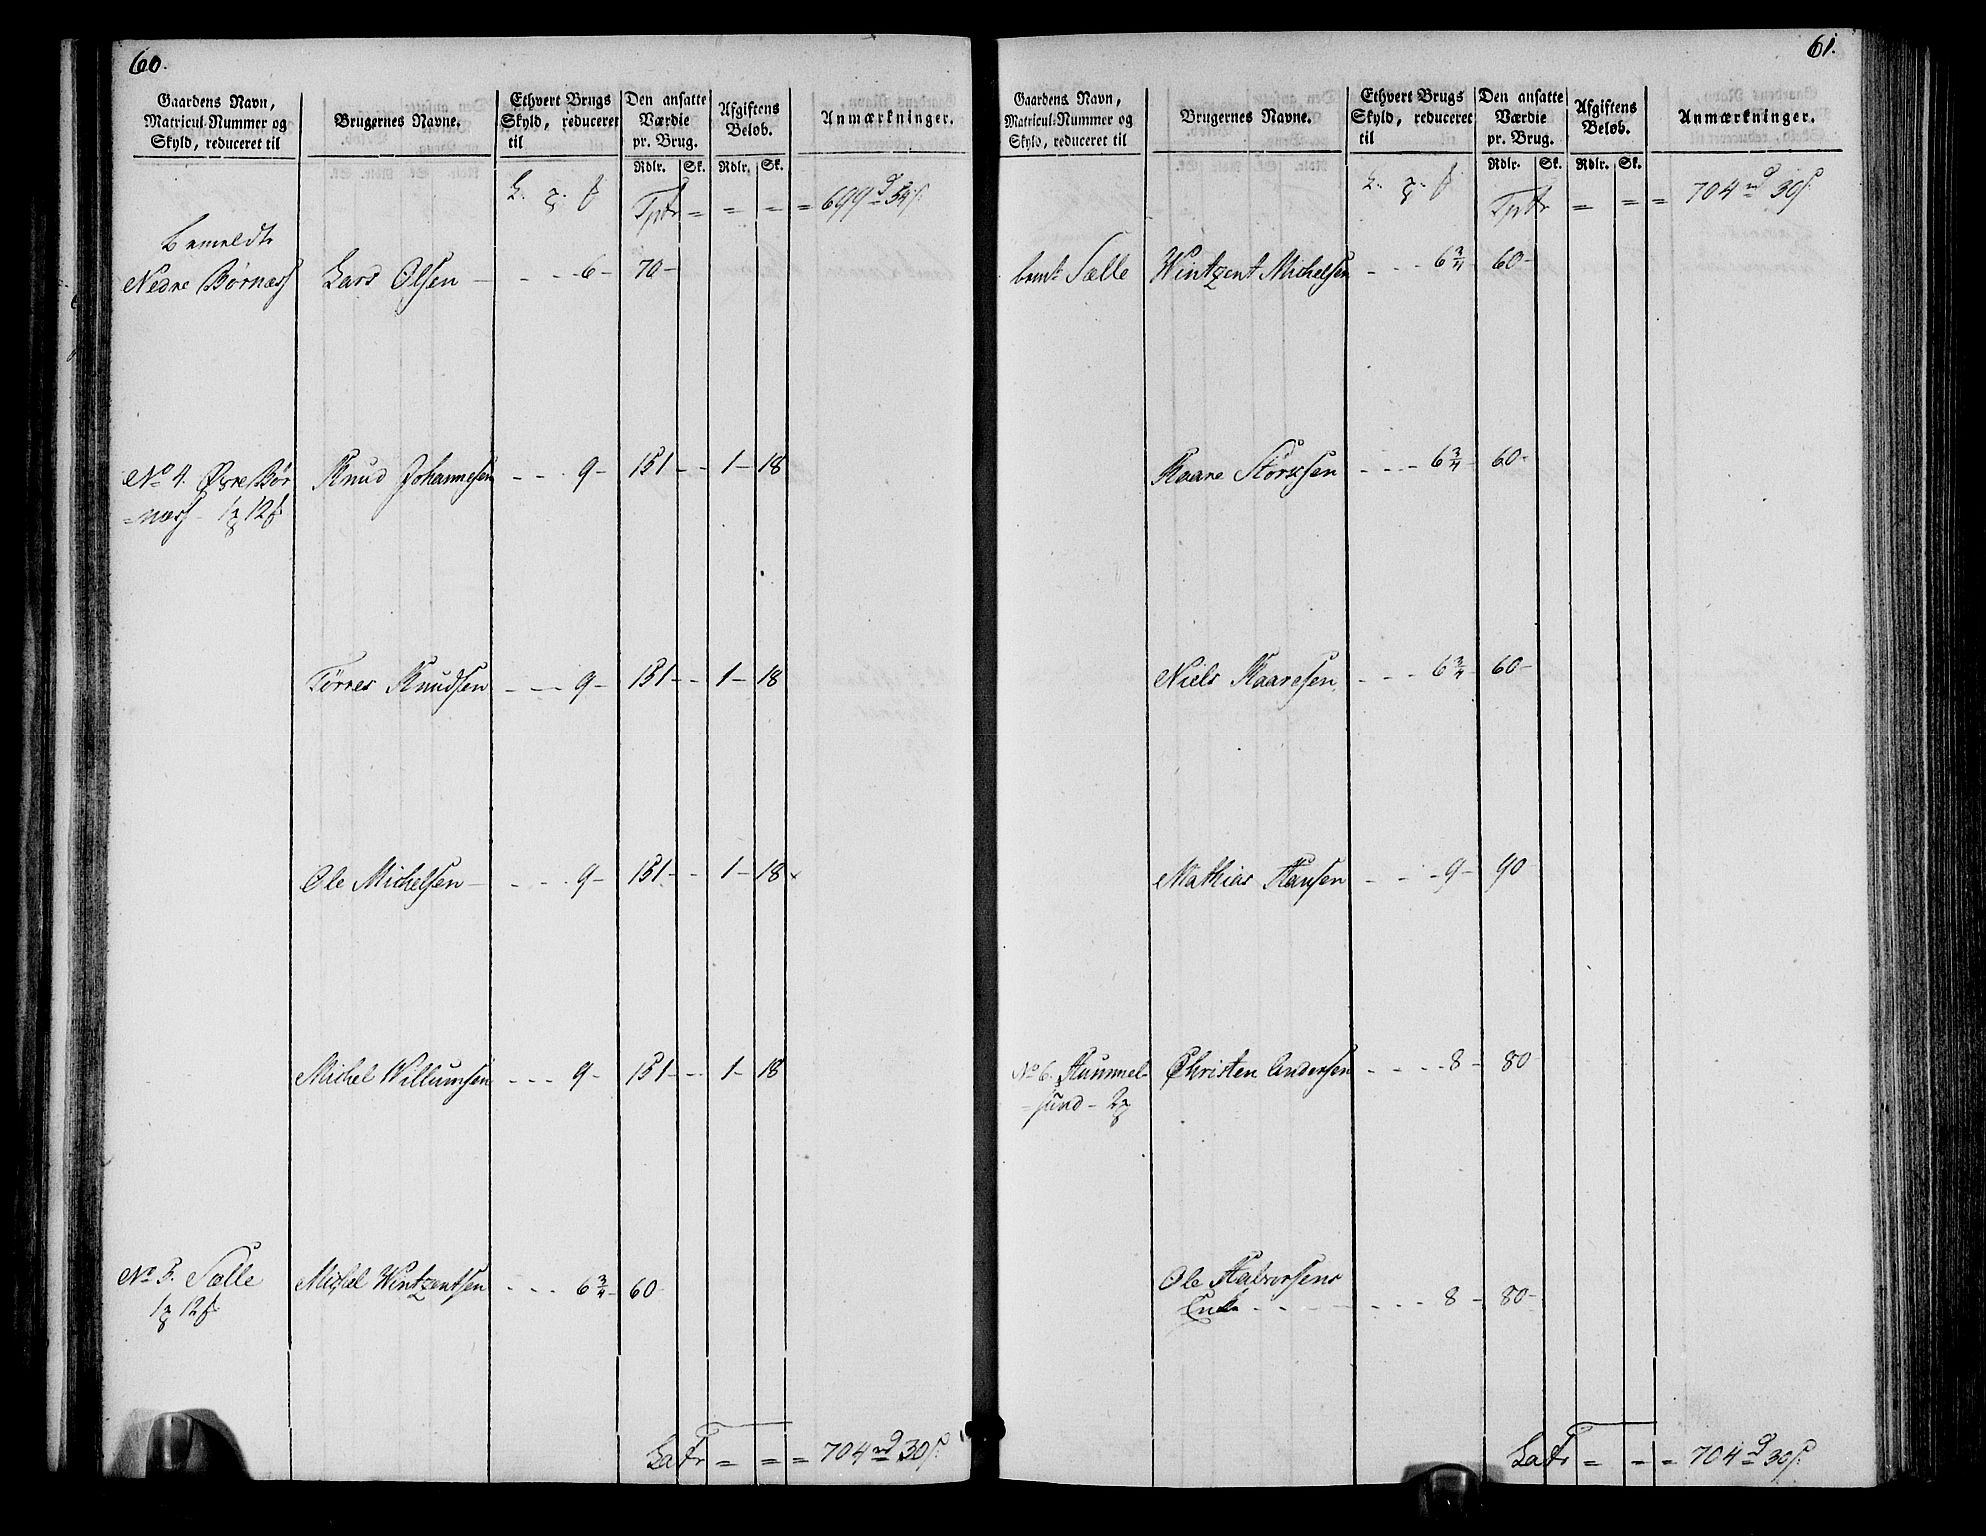 60.
Gaardens Navn, Matricul-Nummer og Skyld, reduceret til
Brugernes Navne.
Ethvert Brugs Skyld, reduceret til
Den ansatte Værdie pr. Brug.
Afgiftens Beløb.
Anmærkninger.
Rdlr. Sk. Rdlr. Sk.
Tptr = = = = 699
Bemeldte
Nedre Børnæss Lars Olsen - - - 6 - 70 -
No 4. Øvre Bør Knud Johannesen - - - 9 - 151 - - 1 - 18
=næss - 12
Tørres Knudsen - - - 9 - 151 - - 1 - 18
Ole Michelsen - - - 9 - 151 - - 1 - 18
Michel Willumsen - - - 9 - 151 - - 1 - 18
No 5. Sælle Michel Wintzentsen - - - 6 3/4 - 60 -
12
Latr = = = 704 rd 30 s.
61.
Gaardens Navn, Matricul-Nummer og Skyld, reduceret til
Brugernes Navne.
Ethvert Brugs Skyld, reduceret til
Den ansatte Værdie pr. Brug.
Afgiftens Beløb.
Anmærkninger.
Rdlr. Sk. Rdlr. Sk.
Tptr = = = 704 rd 30 s
bemte Sælle Wintzent Michelsen - - - 6 3/4 - 60 -
Kaare Storksen - - - 6 3/4 - 60 -
Niels Kaaresen - - - 6 3/4 - 60 -
Mathias Hansen - - - 9 - 90
No 6. Hummel- Christen Andersen - - - - 8 - 80
=sund - 2
Ole Halvorsens
Enke - - - - - - 8 - 80 -
Latr = = = 704 rd 30 s.